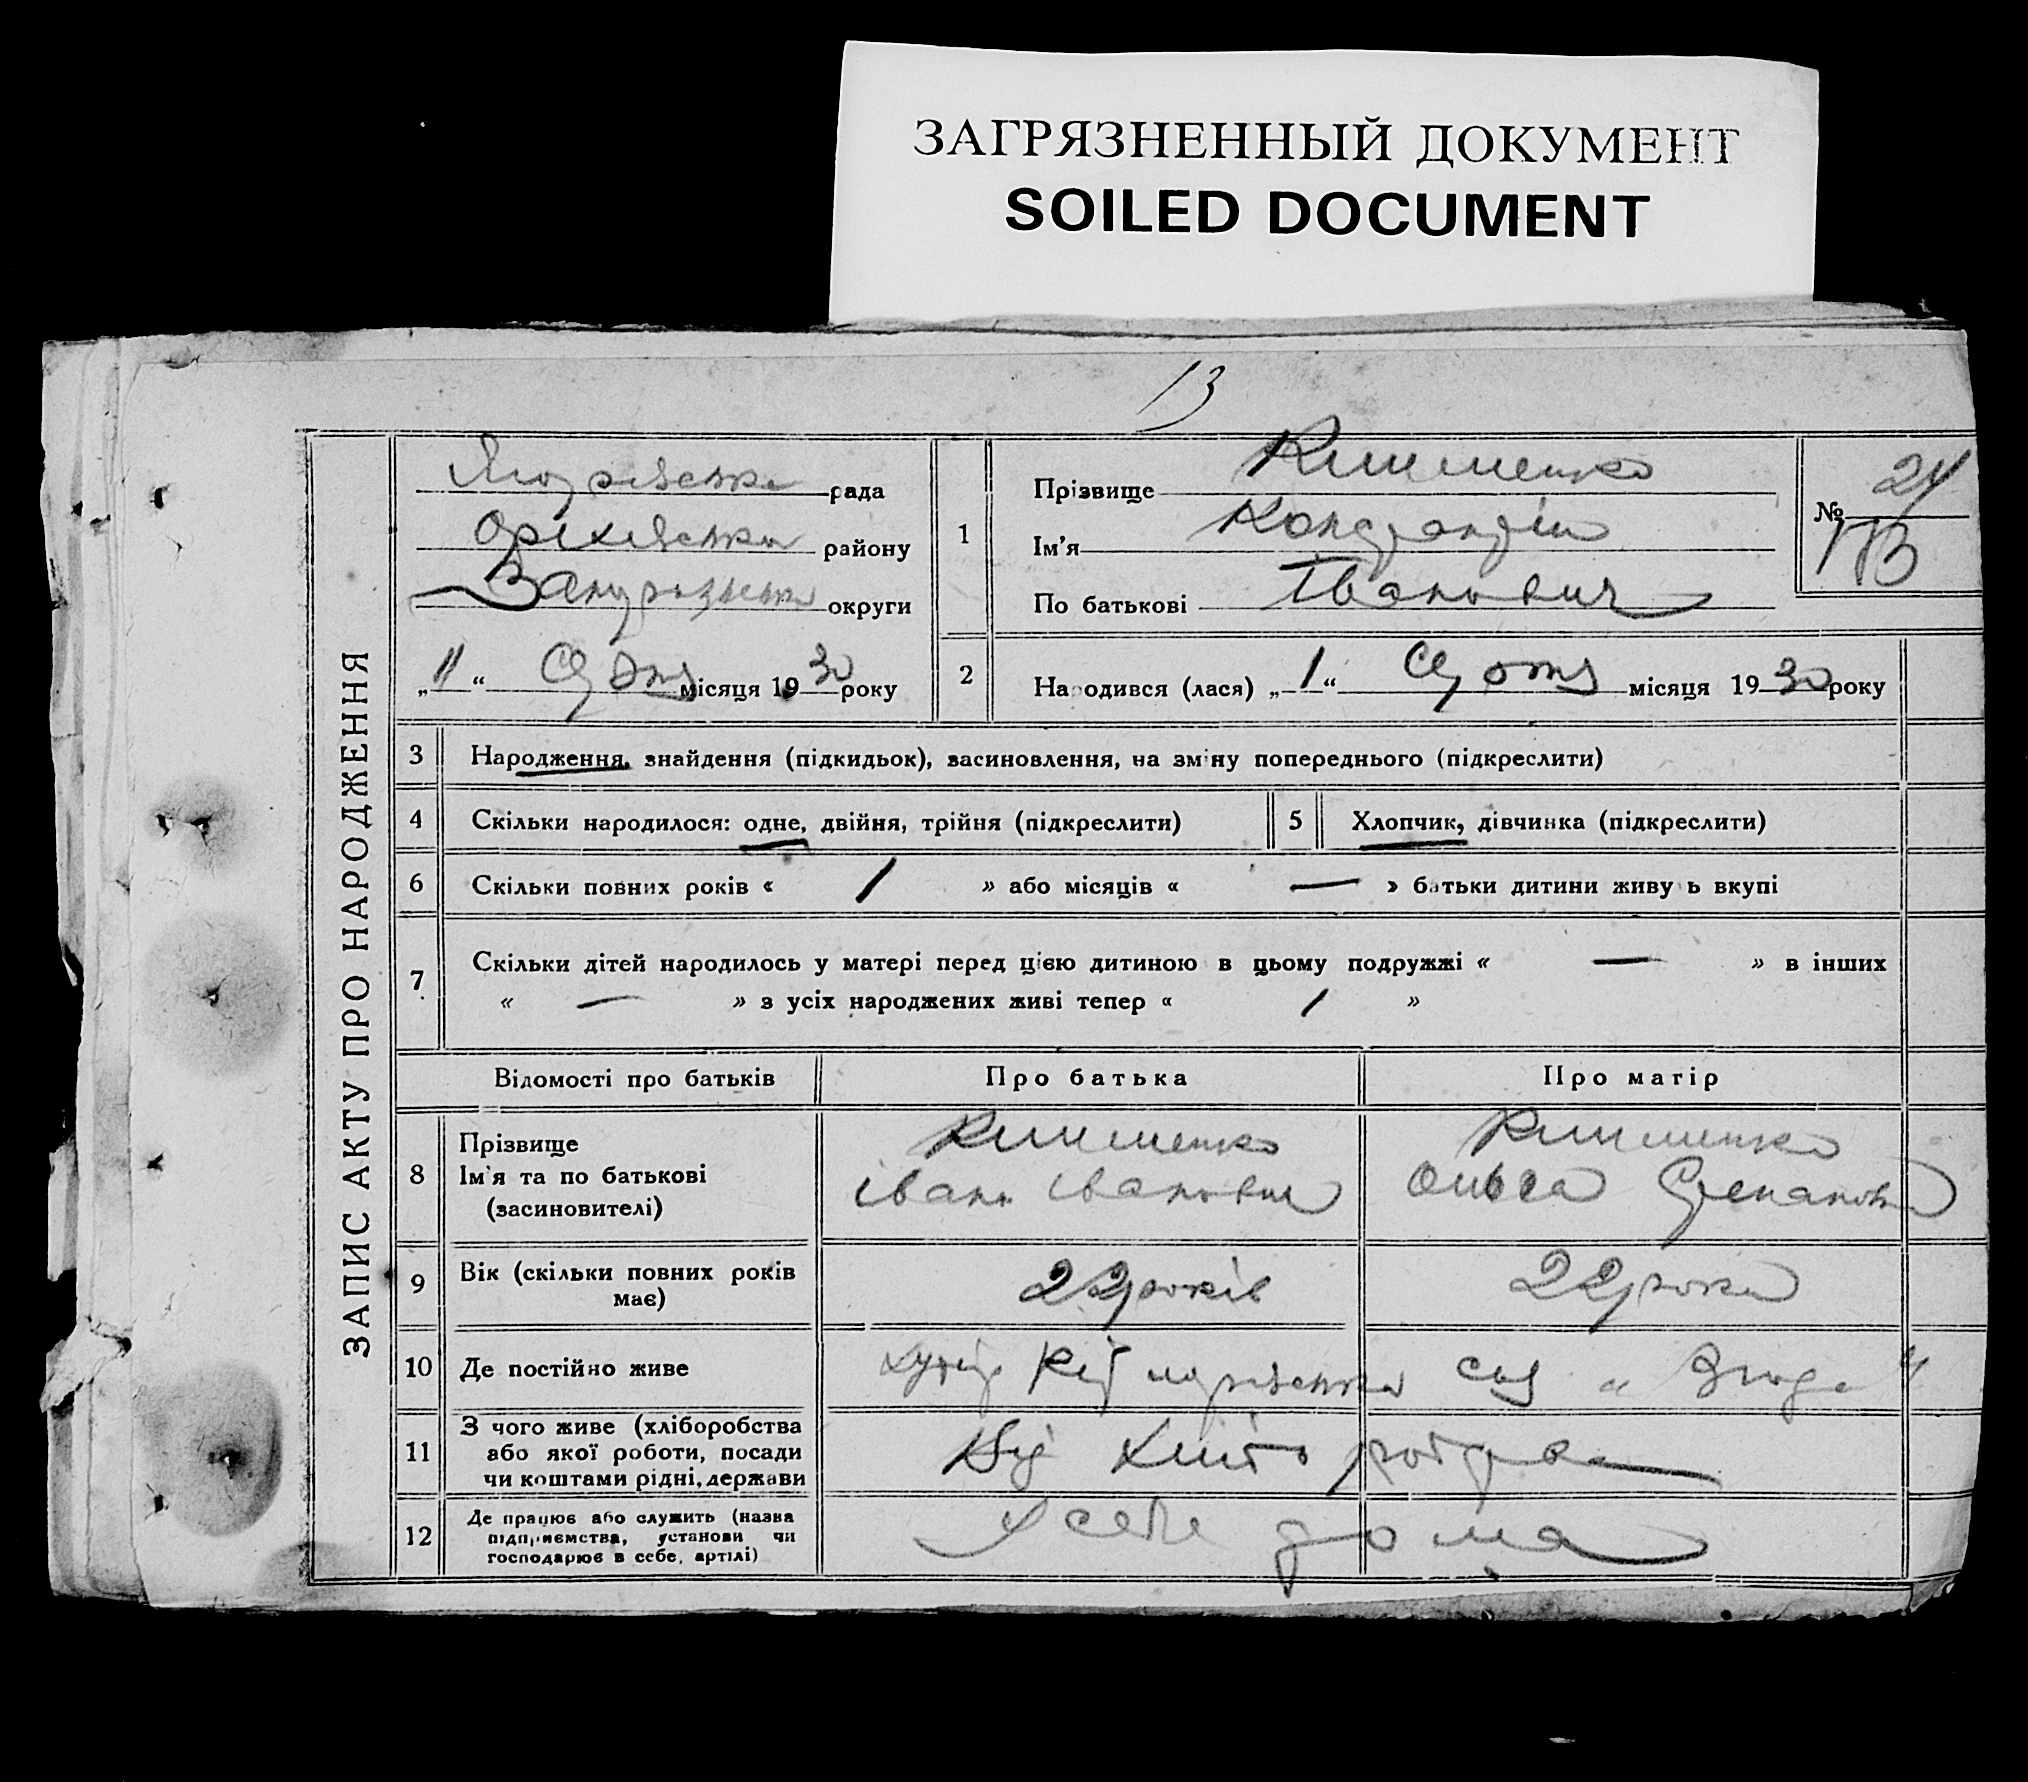 ЗАГРЯЗНЕННЫЙ ДОКУМЕНТ
SOILED DOCUMENT
13
ЗАПИС АКТУ ПРО НАРОДЖЕННЯ
рада
Оріхівська району
округи
„11“ місяця 1930 року
1
Прізвище Клименко
Ім'я
По батькові Іванович
№ 24
2
Народився (лася) „1“ місяця 1930 року
3 Народження, знайдення (підкидьок), засиновлення, на зміну попереднього (підкреслити)
4 Скільки народилося: одне, двійня, трійня (підкреслити)
5 Хлопчик, дівчинка (підкреслити)
6 Скільки повних років « 1 » або місяців « — » батьки дитини живуть вкупі
7 Скільки дітей народилось у матері перед цією дитиною в цьому подружжі « — » в інших
« — » з усіх народжених живі тепер « 1 »
Відомості про батьків Про батька Про матір
8 Прізвище
Ім'я та по батькові
(засиновителі)
Клименко
Іван Іванович
Клименко
Ольга Степанов
9 Вік (скільки повних років
має)
22 років
22 роки
10 Де постійно живе
хутір
11 З чого живе (хліборобства
або якої роботи, посади
чи коштами рідні, держави
Від хліборобства
12 Де працює або служить (назва
підприємства, установи чи
господарює в себе, артілі)
У себе дома